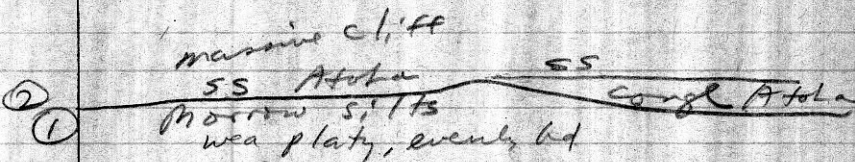 massive cliff
SS Atoka SS
② Congl Atoka
① Morrow silts
wea platy, evenly bd